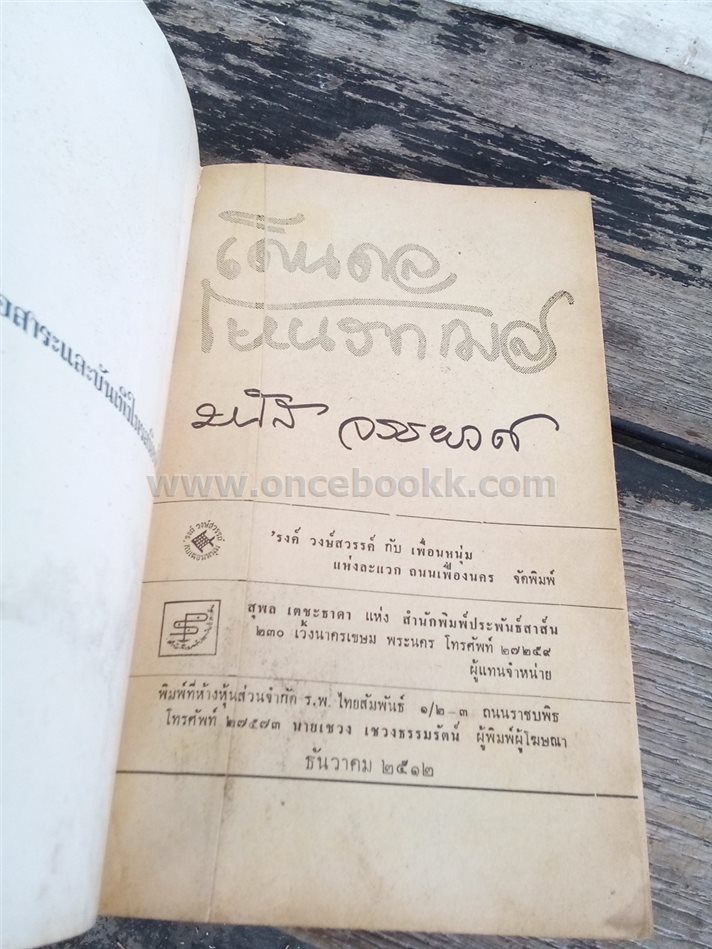 อสาระและบันเทิงใน
มนัส จรรยงค์
www.oncebookk.com
'รงค์ วงษ์สวรรค์
กับเพื่อนหนุ่ม
'รงค์ วงษ์สวรรค์ กับ เพื่อนหนุ่ม
แห่งละแวก ถนนเฟื่องนคร จัดพิมพ์
สุพล เตชะธาดา แห่ง สำนักพิมพ์ประพันธ์สาส์น
๒๓๐ เวิ้งนาครเขษม พระนคร โทรศัพท์ ๒๗๒๕๙
ผู้แทนจำหน่าย
พิมพ์ที่ห้างหุ้นส่วนจำกัด ร.พ. ไทยสัมพันธ์ ๑/๒-๓ ถนนราชบพิธ
โทรศัพท์ ๒๗๕๗๓ นายเชวง เชวงธรรมรัตน์ ผู้พิมพ์ผู้โฆษณา
ธันวาคม ๒๕๑๒